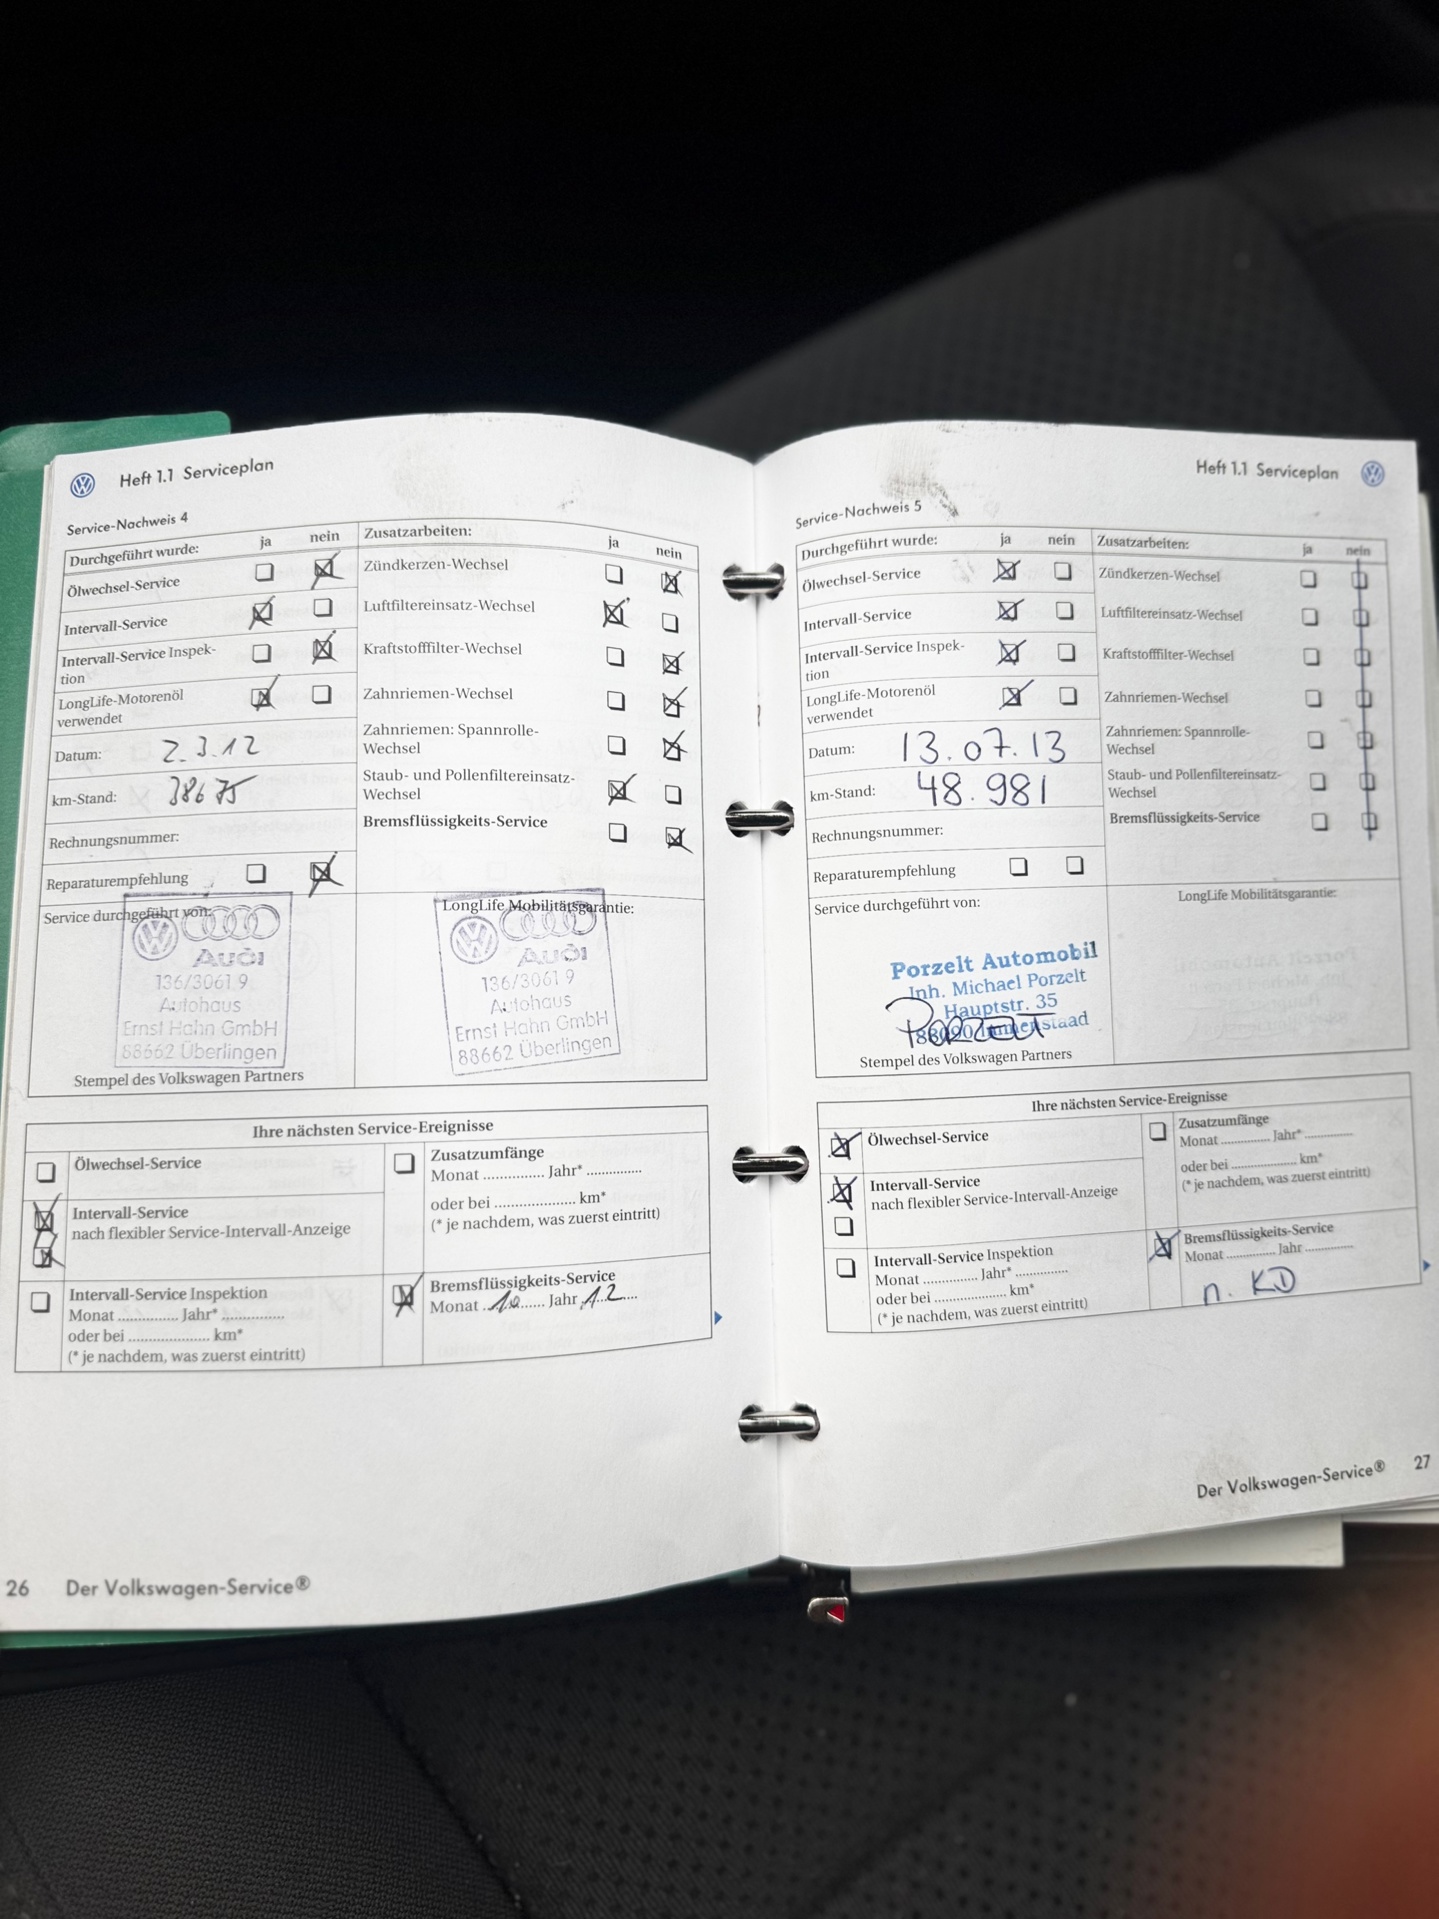 Heft 1.1 Serviceplan
Service-Nachweis 4
Durchgeführt wurde: ja nein
Ölwechsel-Service
Intervall-Service
Intervall-Service Inspek-
tion
LongLife-Motorenöl
verwendet
Datum: 2.3.12
km-Stand: 38675
Rechnungsnummer:
Reparaturempfehlung
Zusatzarbeiten: ja nein
Zündkerzen-Wechsel
Luftfiltereinsatz-Wechsel
Kraftstofffilter-Wechsel
Zahnriemen-Wechsel
Zahnriemen: Spannrolle-
Wechsel
Staub- und Pollenfiltereinsatz-
Wechsel
Bremsflüssigkeits-Service
Service durchgeführt von:
Audi
136/3061 9
Autohaus
Ernst Hahn GmbH
88662 Überlingen
Stempel des Volkswagen Partners
LongLife Mobilitätsgarantie:
Audi
136/3061 9
Autohaus
Ernst Hahn GmbH
88662 Überlingen
Ihre nächsten Service-Ereignisse
Ölwechsel-Service
Intervall-Service
nach flexibler Service-Intervall-Anzeige
Intervall-Service Inspektion
Monat .............. Jahr* ...............
oder bei ................... km*
(* je nachdem, was zuerst eintritt)
Zusatzumfänge
Monat .............. Jahr* .............
oder bei ................... km*
(* je nachdem, was zuerst eintritt)
Bremsflüssigkeits-Service
Monat 10 Jahr 12
26 Der Volkswagen-Service®
Heft 1.1 Serviceplan
Service-Nachweis 5
Durchgeführt wurde: ja nein
Ölwechsel-Service
Intervall-Service
Intervall-Service Inspek-
tion
LongLife-Motorenöl
verwendet
Datum: 13.07.13
km-Stand: 48.981
Rechnungsnummer:
Reparaturempfehlung
Zusatzarbeiten: ja nein
Zündkerzen-Wechsel
Luftfiltereinsatz-Wechsel
Kraftstofffilter-Wechsel
Zahnriemen-Wechsel
Zahnriemen: Spannrolle-
Wechsel
Staub- und Pollenfiltereinsatz-
Wechsel
Bremsflüssigkeits-Service
Service durchgeführt von:
Porzelt Automobil
Inh. Michael Porzelt
Hauptstr. 35
88090 Immenstaad
Stempel des Volkswagen Partners
LongLife Mobilitätsgarantie:
Ihre nächsten Service-Ereignisse
Ölwechsel-Service
Intervall-Service
nach flexibler Service-Intervall-Anzeige
Intervall-Service Inspektion
Monat .............. Jahr* ...............
oder bei ................... km*
(* je nachdem, was zuerst eintritt)
Zusatzumfänge
Monat .............. Jahr* .............
oder bei ................... km*
(* je nachdem, was zuerst eintritt)
Bremsflüssigkeits-Service
Monat .............. Jahr .............
n. KD
Der Volkswagen-Service® 27